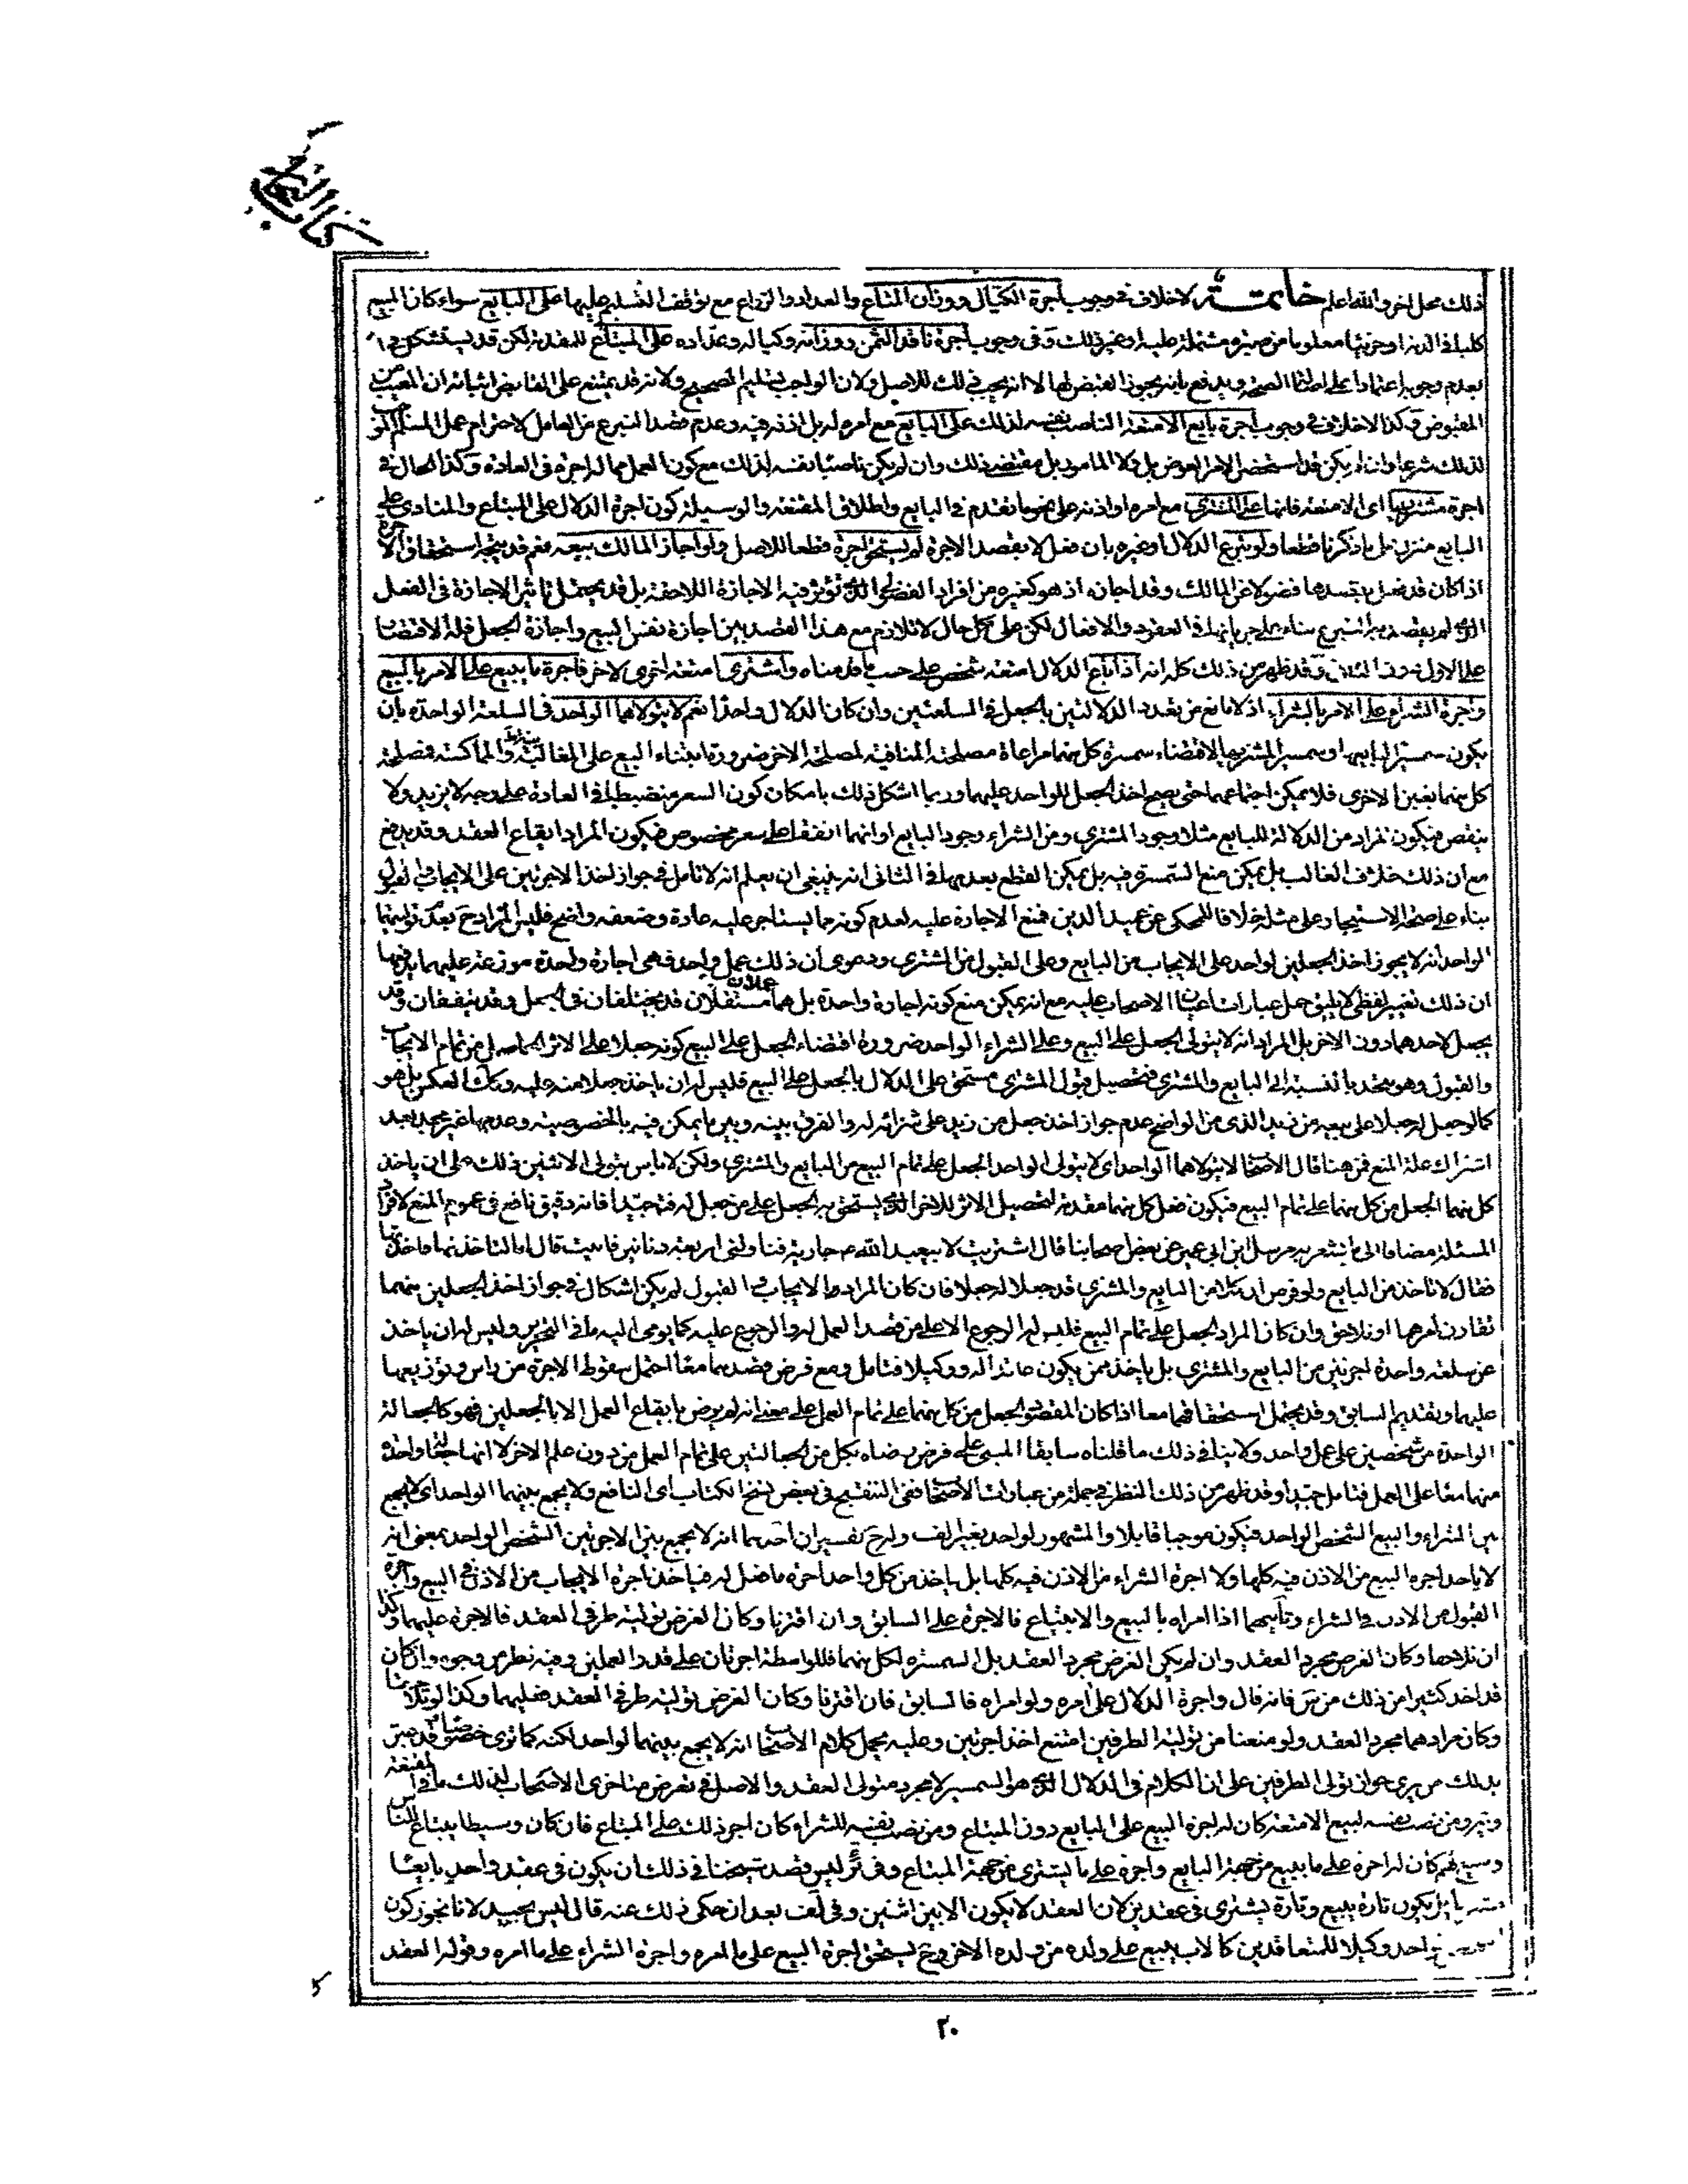 كتاب التجارة
ذلك محل اخر والله اعلم خاتمة لا خلاف في وجوب اجرة الكيال ووزان المتاع والعداد والزراع مع توقف التسليم عليها على البايع سواء كان المبيع
كليا في الذمة او جزئيا معلوما من صبرة مشتملة عليه او غير ذلك وفي وجوب اجرة ناقد الثمن ووزانه وكياله وعداده على المبتاع للمقدمة لكن قد يستشكل في
بعدم وجوبه اعتمادا على اصالة الصحة ويدفع بانه يجوز القبض لها لا انه يجب ذلك للاصل ولان الواجب تسليم الصحيح ولانه قد يمتنع على القابض اثباته ان المعيب من
المقبوض وكذا لا خلاف في وجوب اجرة بايع الامتعة الناصب نفسه لذلك على البايع مع امره له بل اذنه فيه وعدم قصد التبرع من العامل لاحترام عمل المسلم
لذلك شرعا وان لم يكن قد استحضر الامر العوض بل ولا المامور بل مقتضى ذلك وان لم يكن ناصبا نفسه لذلك مع كون العمل مما له اجرة في العادة وكذا الحال في
اجرة مشتريها اى الامتعة فانها على المشتري مع امره او اذنه على نحو ما تقدم في البايع واطلاق المقنعة والوسيلة كون اجرة الدلال على المبتاع والمنادى على
البايع منزل على ما ذكرنا قطعا ولو تبرع الدلال او غيره بان فعل لا بقصد الاجرة لم يستحق اجرة قطعا للاصل ولو اجاز المالك بيعه نعم قد يتجه استحقاق الاجرة
اذا كان قد فعل بقصدها فضولا عن المالك وقد اجازه اذ هو كغيره من افراد الفضولي الذى تؤثر فيه الاجازة اللاحقة بل قد يحتمل تاثير الاجازة في الفعل
الذى لم يقصد به التبرع بناء على جريانها في العقود والافعال لكن على كل حال لا تلازم مع هذا القصد بين اجازة نفس البيع واجازة الجعل فله الاقتصار
على الاول دون الثانى وقد ظهر من ذلك كله انه اذا باع الدلال امتعة شخص على حسب ما قدمناه واشترى امتعة اخرى لاخر فاجرة ما يبيع على الامر بالبيع
واجرة الشراء على الامر بالشراء اذ لا مانع من تعدد الدلالتين بالجعل في السلعتين وان كان الدلال واحدا نعم لا يتولاهما الواحد في السلعة الواحدة بان
يكون سمسيرا لبايعها وسمسيرا لمشتريها لاقتضاء سمسرة كل منهما مراعاة مصلحته المنافية لمصلحة الاخر ضرورة ابتناء البيع على المغالبة والمماكسة فمصلحة
كل منهما بغبن الاخرى فلا يمكن اجتماعهما حتى يصح اخذ الجعل للواحد عليهما وربما اشكل ذلك بامكان كون السعر منضبطا في العادة على وجه لا يزيد ولا
ينقص فيكون المراد من الدلالة للبايع مثلا وجود المشتري ومن الشراء وجود البايع او انهما اتفقا على سعر مخصوص فيكون المراد ايقاع العقد وقد يدفع
مع ان ذلك خلاف الغالب بل يمكن منع السمسرة فيه بل يمكن القطع بعدمها في الثانى انه ينبغى ان يعلم انه لا تامل في جواز اخذ الاجرتين على الايجاب والقبول
بناء على صحة الاستيجار على مثله خلافا للمحكى عن عميد الدين فمنع الاجارة عليه لعدم كونه مما يستاجر عليه عادة وضعفه واضح فليس المراد ح بعدم توليتهما
الواحد انه لا يجوز اخذ الجعلين لواحد على الايجاب من البايع وعلى القبول من المشتري ودعوى ان ذلك عمل واحد فهي اجارة واحدة موزعة عليهما يدفعها
ان ذلك تغيير لفظي لا يليق حمل عبارات اعيان الاصحاب عليه مع انه يمكن منع كونه اجارة واحدة بل هما عملان مستقلان قد يختلفان في الجعل وقد يتفقان وقد
يجعل لاحدهما دون الاخر بل المراد انه لا يتولى الجعل على البيع وعلى الشراء الواحد ضرورة اقتضاء الجعل على البيع كونه جعلا على الاثر الحاصل من تمام الايجاب
والقبول وهو متحد بالنسبة الى البايع والمشتري فتحصيل قبول المشتري مستحق على الدلال بالجعل على البيع فليس له ان ياخذ جعلا منه عليه وكذا العكس بل هو
كما لو جعل له جعلا على بيعه من زيد الذى من الواضح عدم جواز اخذ جعل من زيد على شرائه له والفرق بينه وبين ما يمكن فيه بالخصوصية وعدمها غير مجد بعد
اشتراك علة المنع فمن هنا قال الاصحاب لا يتولاهما الواحد اى لا يتولى الواحد الجعل على تمام البيع من البايع والمشتري ولكن لا باس بتولى الاثنين ذلك على ان ياخذ
كل منهما الجعل من كل منهما على تمام البيع فيكون فعل كل منهما مقدمة لتحصيل الاثر للاخر الذى يستحق به الجعل على من جعل له فتامل جيدا فانه دقيق نافع في عموم المنع لافراد
المسئلة مضافا الى ما يشعر به مرسل ابن ابي عمير عن بعض اصحابنا قال اشتريت لابيعبد الله ع جارية فناولني اربعة دنانير فابيت قال اما لتاخذنها فاخذتها
فقال لا تاخذ من البايع ولو فرض ان كلا من البايع والمشتري قد جعلا له جعلا فان كان المراد به الايجاب والقبول لم يكن اشكال في جواز اخذ الجعلين منهما
تقارن امرهما او تلاحق وان كان المراد الجعل على تمام البيع فليس له الرجوع الا على من قصد العمل له والرجوع عليه كما يومى اليه ما في التحرير وليس له ان ياخذ
عن سلعة واحدة اجرتين من البايع والمشتري بل ياخذ ممن يكون عاقدا له ووكيلا فتامل ومع فرض قصدهما معا احتمل سقوط الاجرة من راس وتوزيعها
عليهما وتقديم السابق وقد يحتمل استحقاقهما معا اذا كان المقصود الجعل من كل منهما على تمام العمل على معنى انه لم يرض بايقاع العمل الا بالجعلين فهو كالجعالة
الواحدة من شخصين على عمل واحد ولا ينافي ذلك ما قلناه سابقا المبنى على فرض رضاه بكل من الجعالتين على تمام العمل من دون علم الاخر لا انها جعالة واحدة
منهما معا على العمل فتامل جيدا وقد ظهر من ذلك النظر في جملة من عبارات الاصحاب ففى التنقيح في بعض نسخ الكتاب اى النافع ولا يجمع بينهما الواحد اى لا يجمع
بين الشراء والبيع الشخص الواحد فيكون موجبا قابلا والمشهور لواحد بغير الف ولام ح تفسيران احدهما انه لا يجمع بين الاجرتين الشخص الواحد بمعنى انه
لا ياخذ اجرة البيع من الاذن فيه كلها ولا اجرة الشراء من الاذن فيه كلها بل ياخذ من كل واحد اجرة ما فعل له فياخذ اجرة الايجاب من الاذن في البيع واجرة
القبول من الاذن في الشراء وثانيهما اذا امراه بالبيع والابتياع فالاجرة على السابق وان اقترنا وكان الغرض تولية طرفي العقد فالاجرة عليهما وكذا
ان تلاحقا وكان الغرض مجرد العقد وان لم يكن الغرض مجرد العقد بل السمسرة لكل منهما فللواسطة اجرتان على قدر العملين وفيه نظر من وجوه وان كان
قد اخذ كثيرا من ذلك من س فانه قال واجرة الدلال على امره ولو امراه فالسابق فان اقترنا وكان الغرض تولية طرفي العقد فعليهما وكذا لو تلاحقا
وكان مرادهما مجرد العقد ولو منعنا من تولية الطرفين امتنع اخذ اجرتين وعليه يحمل كلام الاصحاب انه لا يجمع بينهما لواحد لكنه كما ترى
بذلك من يرى جواز تولى الطرفين على ان الكلام في الدلال الذى هو السمسير لا مجرد متولى العقد والاصل في تعرض متاخري الاصحاب لذلك ما في المقنعة
ومن نصب نفسه لبيع الامتعة كان له اجرة البيع على البايع دون المبتاع ومن نصب نفسه للشراء كان اجر ذلك على المبتاع فان كان وسيطا يبتاع للناس
ويبيع لهم كان له اجرة على ما يبيع من جهة البايع واجرة على ما يشتري من جهة المبتاع وفى ئر ليس قصد شيخنا في ذلك ان يكون في عقد واحد بايعا
مشتريا بل يكون تارة يبيع وتارة يشتري في عقدين لان العقد لا يكون الا بين اثنين وفى لف بعد ان حكى ذلك عنه قال ليس بجيد لانا نجوز كون
الواحد وكيلا للمتعاقدين كالاب يبيع على ولده من ولده الاخر وح يستحق اجرة البيع على ما امره واجرة الشراء على ما امره وقوله العقد
٢٠